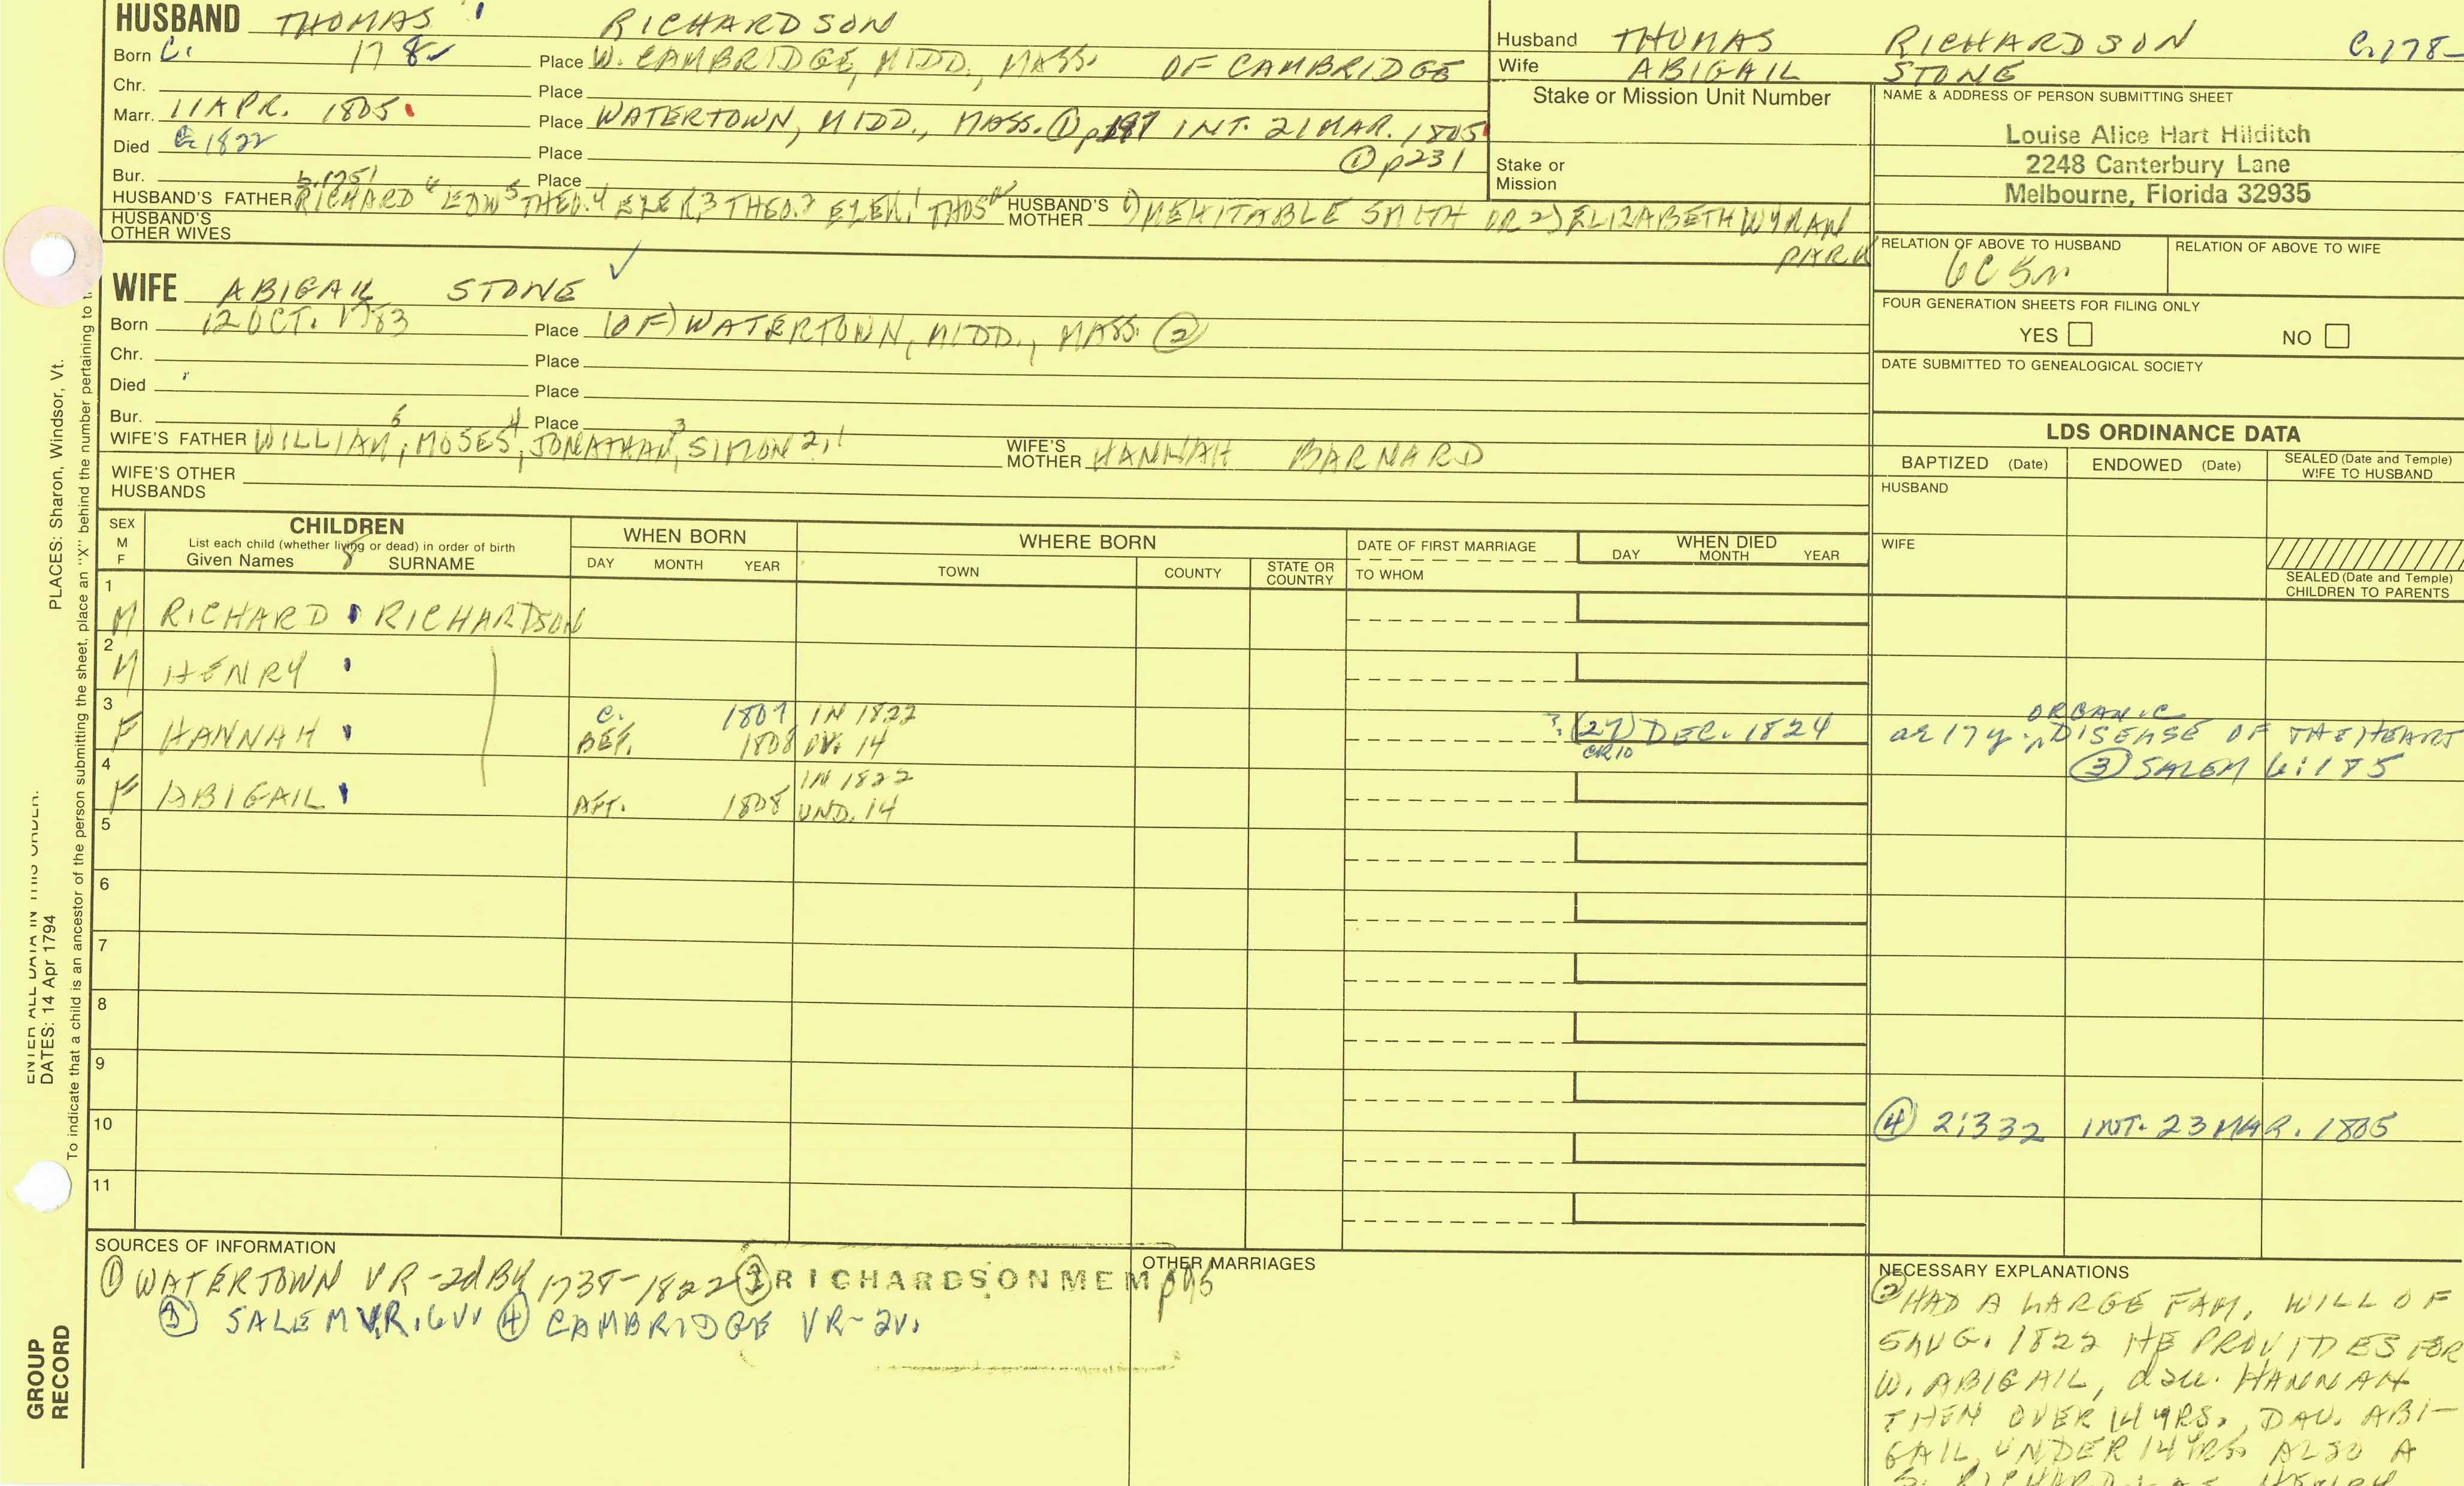 HUSBAND THOMAS RICHARDSON
Born C. 178- Place W. CAMBRIDGE, MIDD., MASS. OF CAMBRIDGE
Chr. Place
Marr. 11 APR. 1805 Place WATERTOWN, MIDD., MASS. ① p197 INT. 21 MAR. 1805
① p231
Died C 1822 Place
Bur. Place
b. 1751
HUSBAND'S FATHER RICHARD 6 EDW 5 THEO. 4 EZEK, 3 THEO. 2 EZEK. 1 THOS HUSBAND'S MOTHER 1) MEHITABLE SMITH OR 2) ELIZABETH WYMAN
PARK
HUSBAND'S OTHER WIVES
Husband THOMAS RICHARDSON C. 178-
Wife ABIGAIL STONE
Stake or Mission Unit Number
Stake or Mission
NAME & ADDRESS OF PERSON SUBMITTING SHEET
Louise Alice Hart Hilditch
2248 Canterbury Lane
Melbourne, Florida 32935
RELATION OF ABOVE TO HUSBAND RELATION OF ABOVE TO WIFE
6C5R
FOUR GENERATION SHEETS FOR FILING ONLY
YES NO
DATE SUBMITTED TO GENEALOGICAL SOCIETY
WIFE ABIGAIL STONE
Born 12 OCT. 1783 Place (OF) WATERTOWN, MIDD., MASS. ②
Chr. Place
Died Place
Bur. Place
WIFE'S FATHER WILLIAM 5, MOSES 4, JONATHAN 3, SIMON 2, 1 WIFE'S MOTHER HANNAH BARNARD
WIFE'S OTHER HUSBANDS
LDS ORDINANCE DATA
BAPTIZED (Date) ENDOWED (Date) SEALED (Date and Temple) WIFE TO HUSBAND
HUSBAND
WIFE
SEALED (Date and Temple) CHILDREN TO PARENTS
SEX M F
CHILDREN
List each child (whether living or dead) in order of birth
Given Names 8 SURNAME
WHEN BORN
DAY MONTH YEAR
WHERE BORN
TOWN COUNTY STATE OR COUNTRY
DATE OF FIRST MARRIAGE
TO WHOM
WHEN DIED
DAY MONTH YEAR
1 M RICHARD RICHARDSON
2 M HENRY
3 F HANNAH C. 1807 IN 1822
BEF. 1808 OV. 14
? (27) DEC. 1824
CR10
ae 17 y. ORGANIC DISEASE OF THE HEART
③ SALEM 6:185
4 F ABIGAIL AFT. 1808 IN 1822
UND. 14
5
6
7
8
9
10 ④ 2:332 INT. 23 MAR. 1805
11
SOURCES OF INFORMATION
① WATERTOWN VR - 2d BK 1738-1822 ② RICHARDSON MEM p95
③ SALEM V.R. 6V. ④ CAMBRIDGE VR - 2V.
OTHER MARRIAGES
NECESSARY EXPLANATIONS
② HAD A LARGE FAM. WILL OF
5 AUG. 1822 HE PROVIDES FOR
W. ABIGAIL, dau. HANNAH
THEN OVER 14 YRS., DAU. ABI-
GAIL, UNDER 14 YRS. ALSO A
PLACES: Sharon, Windsor, Vt.
ENTER ALL DATA IN THIS ORDER:
DATES: 14 Apr 1794
To indicate that a child is an ancestor of the person submitting the sheet, place an "X" behind the number pertaining to
GROUP RECORD